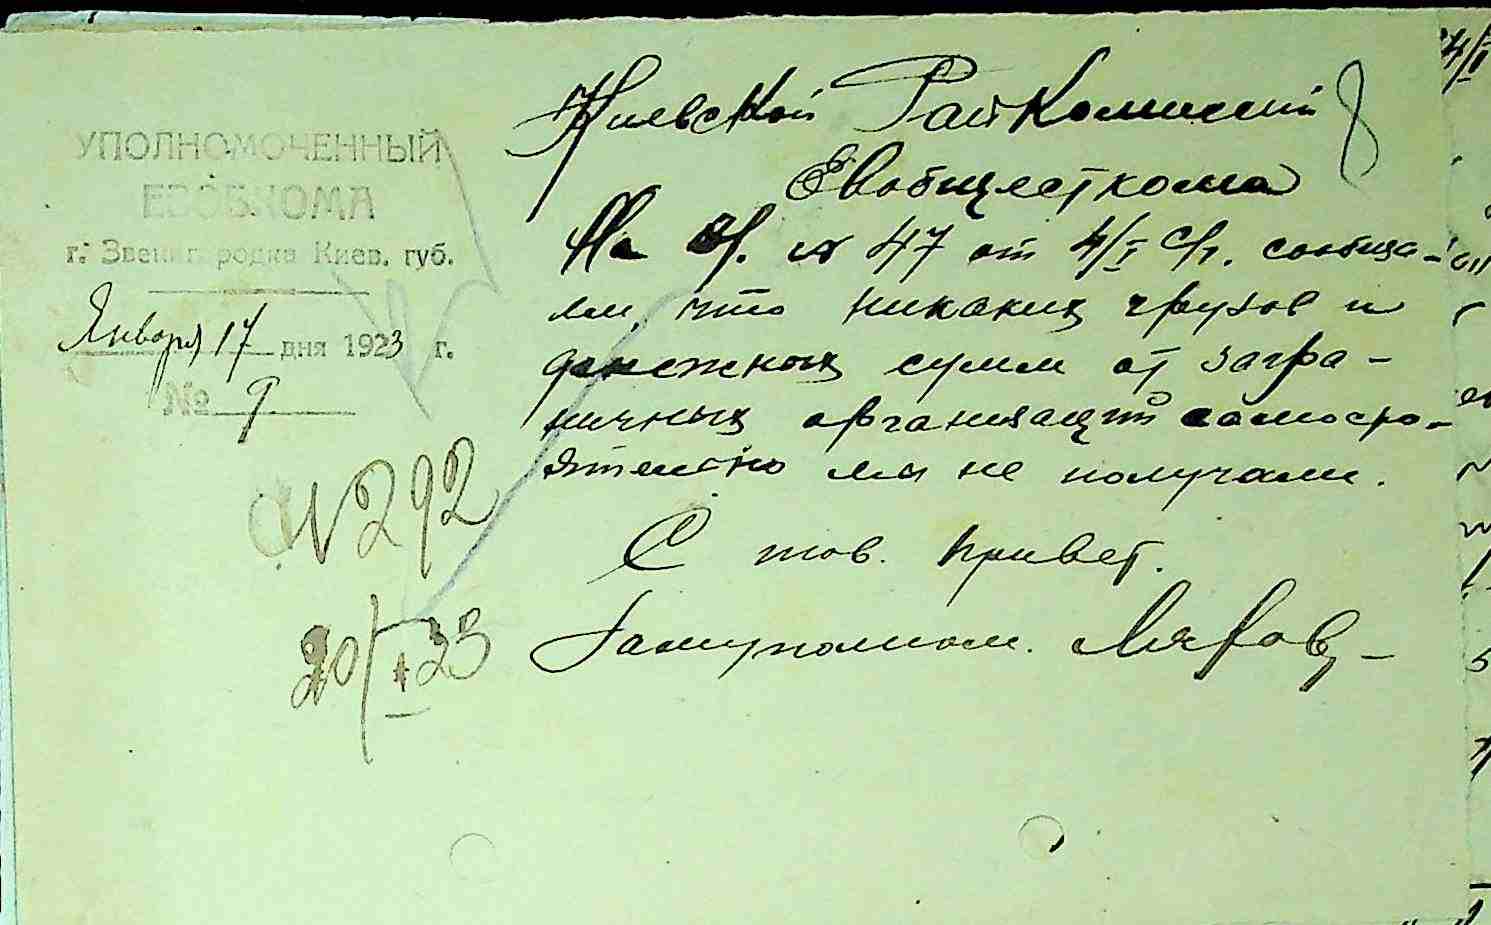 УПОЛНОМОЧЕННЫЙ
ЕВОБКОМА
г. Звенигородка Киев. губ.
Января 17 дня 1923 г.
№ 9
N 292
20/I 23
Киевской Райкомиссии
Евобщесткома
На № 47 от 4/I с/г. сообща-
ем, что никаких грузов и
денежных сумм от загра-
ничных организаций самосто-
ятельно мы не получали.
С тов. привет.
Замуполном.
8
4/I